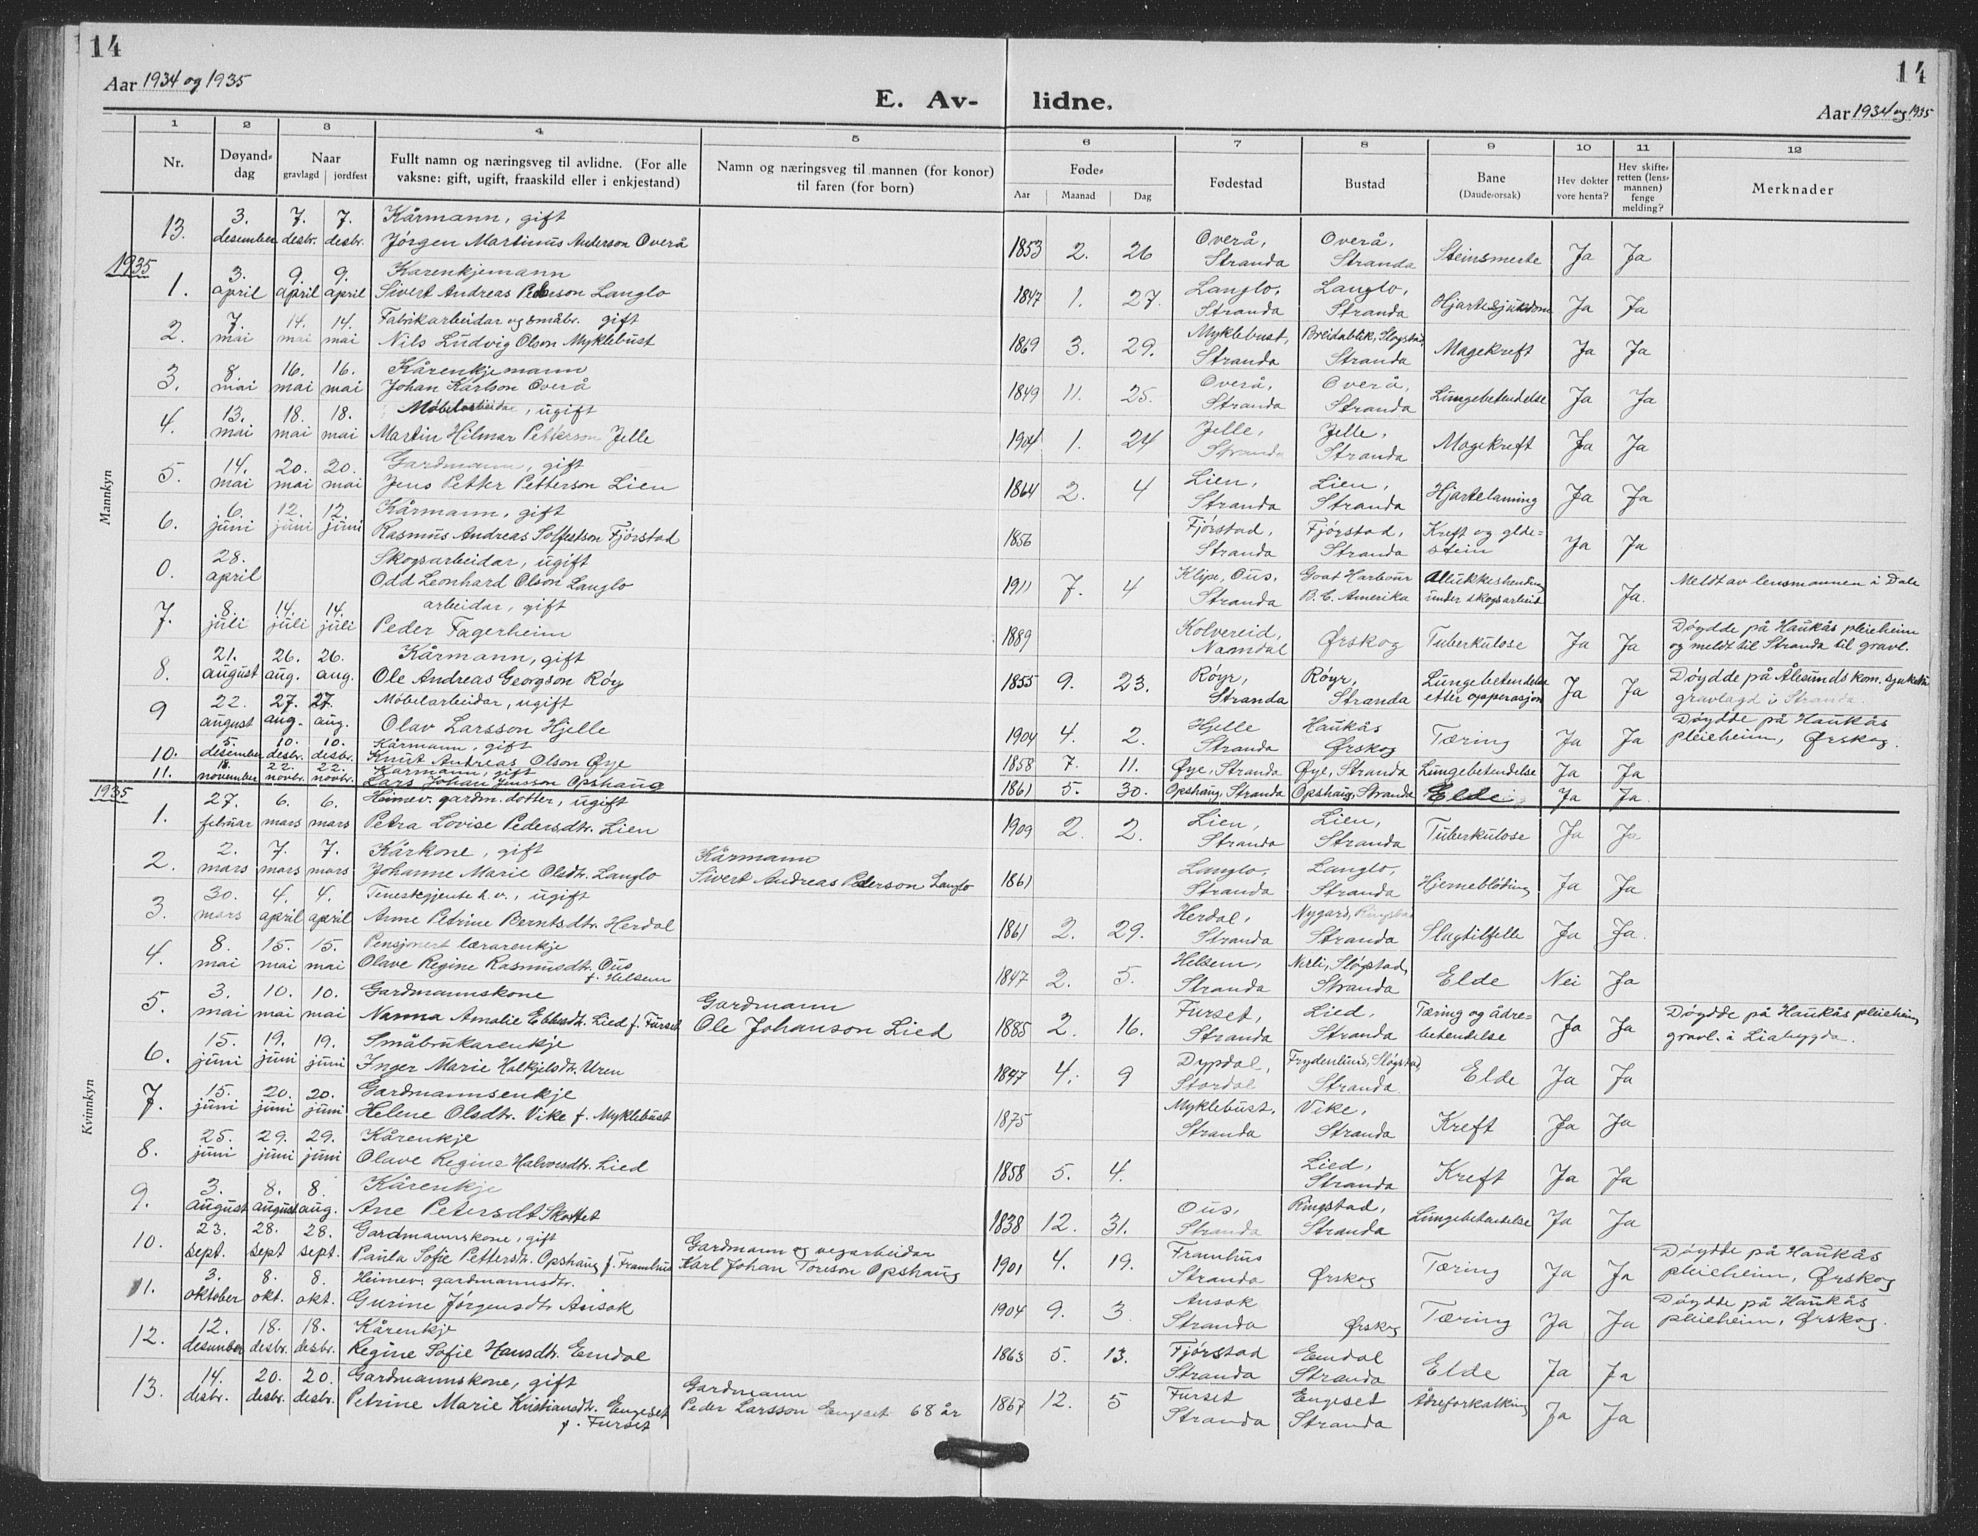 14
14
Aar 1934 og 1935
E. Av-
lidne.
Aar 1934 og 1935
1 2 3 4 5 6 7 8 9 10 11 12
Nr.
Døyand-
dag
Naar
gravlagd jordfest
Fullt namn og næringsveg til avlidne. (For alle
vaksne: gift, ugift, fraaskild eller i enkjestand)
Namn og næringsveg til mannen (for konor)
til faren (for born)
Føde-
Aar Maanad Dag
Fødestad
Bustad
Bane
(Daude-orsak)
Hev dokter
vore henta?
Hev skifte-
retten (lens-
mannen)
fenge
melding?
Merknader
Mannkyn
13. 3. 7. 7. Kårmann, gift Overå, Overå,
desember desbr. desbr. Jørgen Martinus Anderson Overå 1853 2. 26 Stranda Stranda Steinsmerte Ja Ja
1935
1. 3. 9. 9. Kårenkjemann Langlo, Langlo,
april april april Sivert Andreas Pederson Langlo 1847 1. 27. Stranda Stranda Hjartesjukdom Ja Ja
2. 7. 14. 14. Fabrikarbeidar og småbr. gift Myklebust, Breidablik, Sløgstad,
mai mai mai Nils Ludvig Olson Myklebust 1869 3. 29. Stranda Stranda Magekreft Ja Ja
3. 8. 16. 16. Kårenkjemann Overå, Overå,
mai mai mai Johan Karlson Overå 1849 11. 25. Stranda Stranda Lungebetendelse Ja Ja
4. 13. 18. 18. Møbelarbeidar, ugift Jelle, Jelle,
mai mai mai Martin Hilmar Petterson Jelle 1904 1. 24 Stranda Stranda Magekreft Ja Ja
5. 14. 20. 20. Gardmann, gift Lien, Lien,
mai mai mai Jens Petter Petterson Lien 1864 2. 4 Stranda Stranda Hjartelaming Ja Ja
6. 6. 12. 12. Kårmann, gift Fjørstad, Fjørstad, Kreft og
juni juni juni Rasmus Andreas Solfestson Fjørstad 1856 Stranda Stranda stein Ja Ja
0. 28. Skogsarbeidar, ugift Klipe, Ous, Goat Harbour Allukkeshending Meldt av lensmannen i Dale
april Odd Leonhard Olson Langlo 1911 7. 4 Stranda B.C. Amerika under skogsarbeid Ja.
7. 8. 14. 14. arbeidar, gift Kolvereid, Døydde på Haukås pleieheim
juli juli juli Peder Fagerheim 1889 Namdal Ørskog Tuberkulose Ja Ja og meldt til Stranda til gravl.
8. 21. 26. 26. Kårmann, gift Røyr, Røyr, Lungebetendelse Døydde på Ålesunds kom. sjukeh.
august aug. aug. Ole Andreas Georgson Røyr 1855 9. 23. Stranda Stranda etter opperasjon Ja Ja gravlagd i Stranda
9 22. 27. 27. Møbelarbeidar, ugift Hjelle Haukås Døydde på Haukås
august aug. aug. Olav Larsson Hjelle 1904 4. 2. Stranda Ørskog Tæring Ja Ja pleieheim, Ørskog.
10. 5. 10. 10. Kårmann, gift
desember desbr. desbr. Knut Andreas Olson Øye 1858 7. 11. Øye, Stranda Øye, Stranda Lungebetendelse Ja Ja
11. 18. 22. 22. Kårmann, gift
november novbr. novbr. Lars Johan Jensson Opshaug 1861 5. 30. Opshaug, Stranda Opshaug, Stranda Elde Ja Ja
1935
Kvinnkyn
1. 27. 6. 6. Heimev. gardm. dotter, ugift Lien, Lien,
februar mars mars Petra Lovise Pedersdtr. Lien 1909 2 2. Stranda Stranda Tuberkulose Ja Ja
2. 2. 7. 7. Kårkone, gift Kårmann Langlo, Langlo,
mars mars mars Johanne Marie Olsdtr. Langlo Sivert Andreas Pederson Langlo 1861 Stranda Stranda Hjerneblöding Ja Ja
3. 30. 4. 4. Teneskgjente h.v., ugift Herdal, Nygard, Ringstad
mars april april Anne Petrine Berntsdtr. Herdal 1861 2. 29. Stranda Stranda Slagtilfelle Ja Ja.
4. 8. 15. 15. Pensjonert lærarenkje Helsem, Nerli, Sløgstad,
mai mai mai Olave Regine Rasmusdtr. Ous 1847 2. 5. Stranda Stranda Elde Nei Ja
f. Helsem
5. 3. 10. 10. Gardmannskone Gardmann Furset, Lied, Tæring og ådre- Døydde på Haukås pleieheim
mai mai mai Nanna Amalie Ebbesdtr. Lied f. Furset Ole Johanson Lied 1885 2. 16. Stranda Stranda betendelse Ja Ja gravl. i Liabygda.
6. 15. 19. 19. Småbrukarenkje Dypdal, Frydenlund, Sløgstad,
juni juni juni Inger Marie Halkjelsdtr. Uren 1847 4. 9 Stordal Stranda Elde Ja Ja
7. 15. 20. 20. Gardmannsenkje Myklebust, Vike,
juni juni juni Helene Olsdtr. Vike f. Myklebust 1875 Stranda Stranda Kreft Ja Ja
8. 25. 29. 29. Kårenkje Lied,
juni juni juni Olave Regine Halvorsdtr. Lied 1858 5. 4. Stranda Kreft Ja Ja
9. 3. 8. 8. Kårenkje Ous, Ringstad,
august august aug. Ane Petersdt. Skottet 1838 12. 31. Stranda Stranda Lungebetendelse Ja Ja
10. 23. 28. 28. Gardmannskone, gift Gardmann og vegarbeidar Framhus Døydde på Haukås
sept. sept sept. Paula Sofie Pettersdtr. Opshaug f. Framhus Karl Johan Toreson Opshaug 1901 4. 19. Stranda Ørskog Tæring Ja Ja pleieheim, Ørskog
11. 3. 8. 8. Heimev. gardmannsdtr. Ansok Døydde på Haukås
oktober okt. okt. Gurine Jørgensdtr. Ansok 1904 9. 3 Stranda Ørskog Tæring Ja Ja pleieheim, Ørskog.
12. 12. 18. 18. Kårenkje Fjørstad Emdal
desember desbr. desbr. Regine Sofie Hansdtr. Emdal 1863 5. 13. Stranda Stranda Elde Ja Ja
13. 14. 20. 20. Gardmannskone, gift Gardmann Furset Engeset
desbr. desbr. desbr. Petrine Marie Kristiansdtr. Engeset Peder Larsson Engeset 68 år 1867 12. 5 Stranda Stranda Ådreforkalking Ja Ja
f. Furset